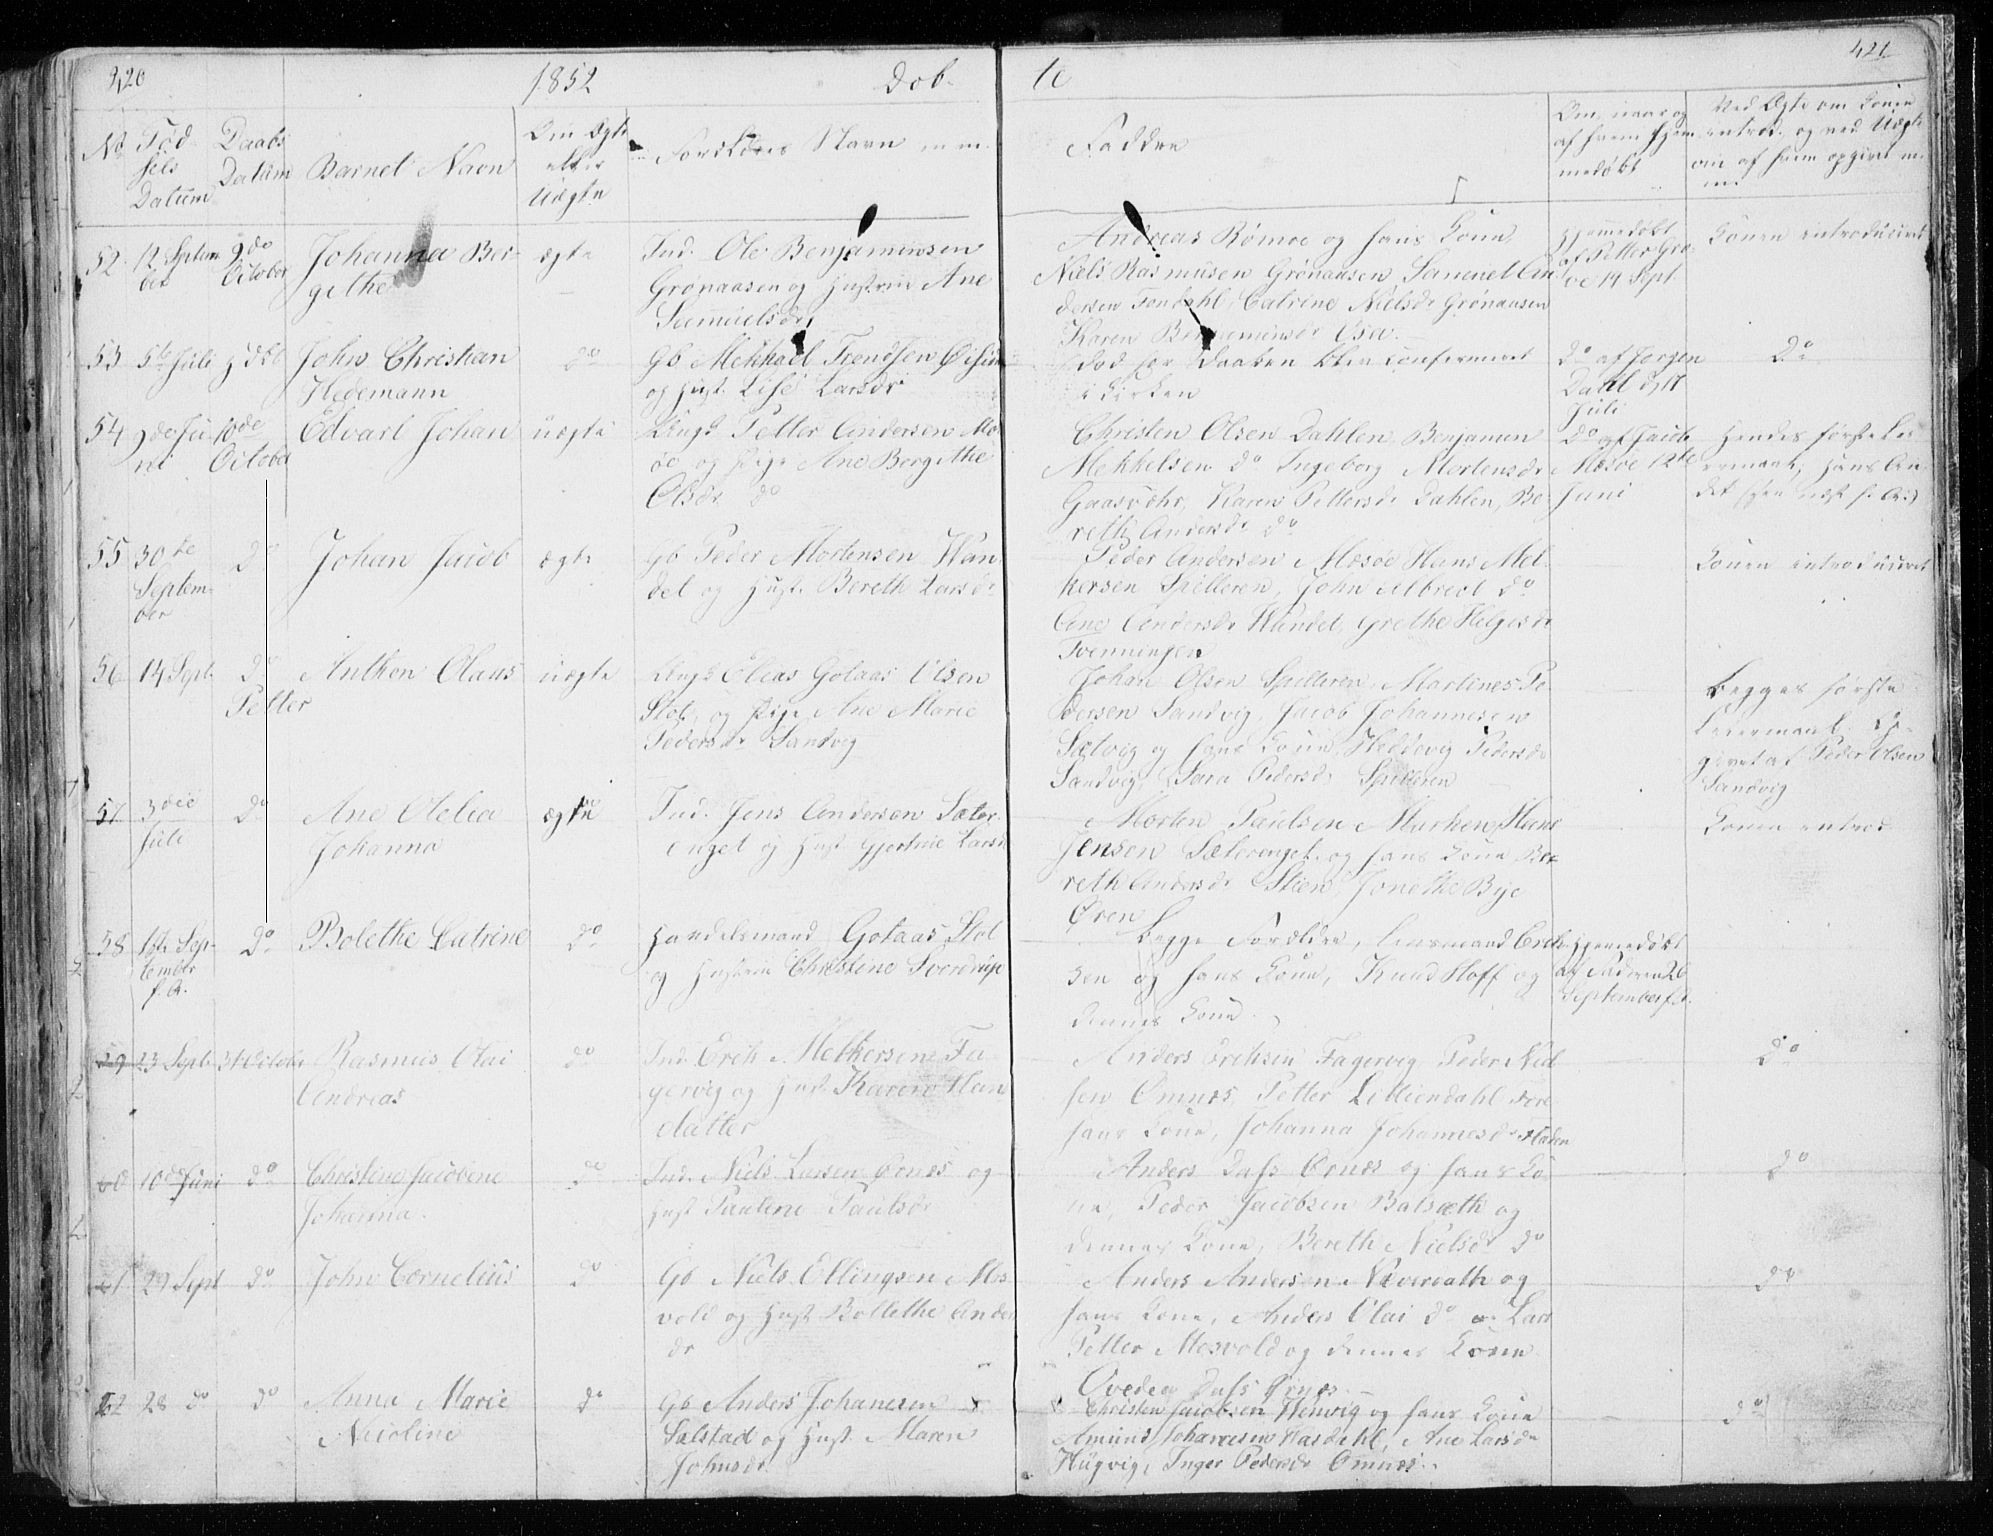 420
1852
Døb-
te
421
No
Fød
sels
Datum
Daabs
Datum
Barnet Navn
Om Ægte
eller
Uægte
Forældres Navn m.m.
Faddre
Om, naar og
af hvem hjem
medøbt
Ved Ægte om Konen
introd. og ved Uægte
om af hvem opgivet m.
m.
52
12 Septem
ber
9de
October
Johanna Ber-
githe
ægte
Ind. Ole Benjaminsen
Grønaasen og Hustrue Ane
Samuelsdr
Andreas Rømoe og hans Kone,
Niels Rasmusen Grønaasen Samuel An
dersen Fondahl, Catrine Nielsdr Grønaasen
Karen Benjaminsdr
hjemmedøbt
af Petter Gro-
voe 14 Sept.
Konen introduceret
53
5te Juli
John Christian
Hedemann
do
Gb Mekkael
og Hust. Lise Larsdr
død før Daaben blev confirmeret
i Kirken
do af Jørgen
Dahl d 17
Juli
do
54
Ju
ni
10de
October
Edvart Johan
uægte
Ungk Petter Andersen Mæ
øe og Pige Ane Bergithe
Olsdr do
Christen Olsen Dahlen, Benjamin
Mekkelsen do Ingeborg Mortensdr
Gaasvær, Karen Pettersdr Dahlen, Be-
reth Andersdr do
do af Jacob
Mæsøe 12te
Juni
Hendes første Lei
ermaal, hans An
det
55
30te
Septem-
ber
do
Johan Jacob
ægte
Gb Peder Mortensen Wan
del og Hust. Bereth Larsdr
Peder Andersen Mæsøe Hans Mel-
kersen Spilleren, John Albrect do
Ane Andersdr Wandel, Grethe Helgesdr
Tvenningen
Konen introduceret
56
14 Sept.
do
Anthon Olaus
Petter
uægte
Ungk Elias Gotaas Olsen
Stol, og Pige Ane Marie
Pedersdr Sandvig
Johan Olsen Spilleren, Martines Pe
dersen Sandvig, Jacob Johannesen
Sætvig og hans Kone, Heddevig Pedersdr
Sandvig, Sara Pedersdr Spilleren
Begges første
Leiermaal. Op-
givet af Peder Olsen
Sandvig
57
3die
Juli
do
Ane Otelia
Johanna
ægte
Ind. Jens Andersen Sæter
enget og Hust Gjertine Larsdr
Morten Paulsen Marken, Hans
Jensen Sæterenget og hans Kone Be-
reth Andersdr Stien, Jonethe Bye
Øren
Konen introd
58
16te Sep-
tembr
f. A.
do
Bolethe Catrine
do
Handelsmand Gotaas Stol
og Hustrue Christine Sverdrup
Begge Forældre, Lensmand Erik
sen og hans Kone, Knud Hoff og
dennes Kone.
Hjemmedøbt
af Faderen 26
September f.A.
59
23 Sept
31 October
Rasmus Olai
Andreas
do
Ind. Erik Melkersen Fa
gervig og Hust. Karen Han
datter
Anders Eriksen Fagervig Peder Niel
sen Ømnes, Petter Lilliendahl
hans Kone, Johanna Johannesdr
do
60
10de Juni
do
Christine Jacobine
Johanna.
do
Ind. Niels Larsen Ørnes og
Hust Pauline Paulsdr
Anders Dass Ørnes og hans Ko
ne, Peder Jacobsen Balsæth og
dennes Kone, Bereth Nielsdr do
do
61
29 Sept
do
John Cornelius
do
Gb Niels Ellingsen Mos
vold og Hust Bollethe Anders
dr
Anders Andersen Neveraath og
hans Kone, Anders Olai do Lars
Petter Mosvold og dennes Kone
Ovedea Dass Ørnes
do
62
28 do
do
Anna Marie
Nicoline
do
Gb Anders Johanesen
Salstad og Hust. Maren
Johnsdr
Christen Jacobsen Hemvig og hans Kone
Amund Johannesen Hasdehl, Ane Larsdr
Hugvig, Inger Pedersdr Ømnes.
do